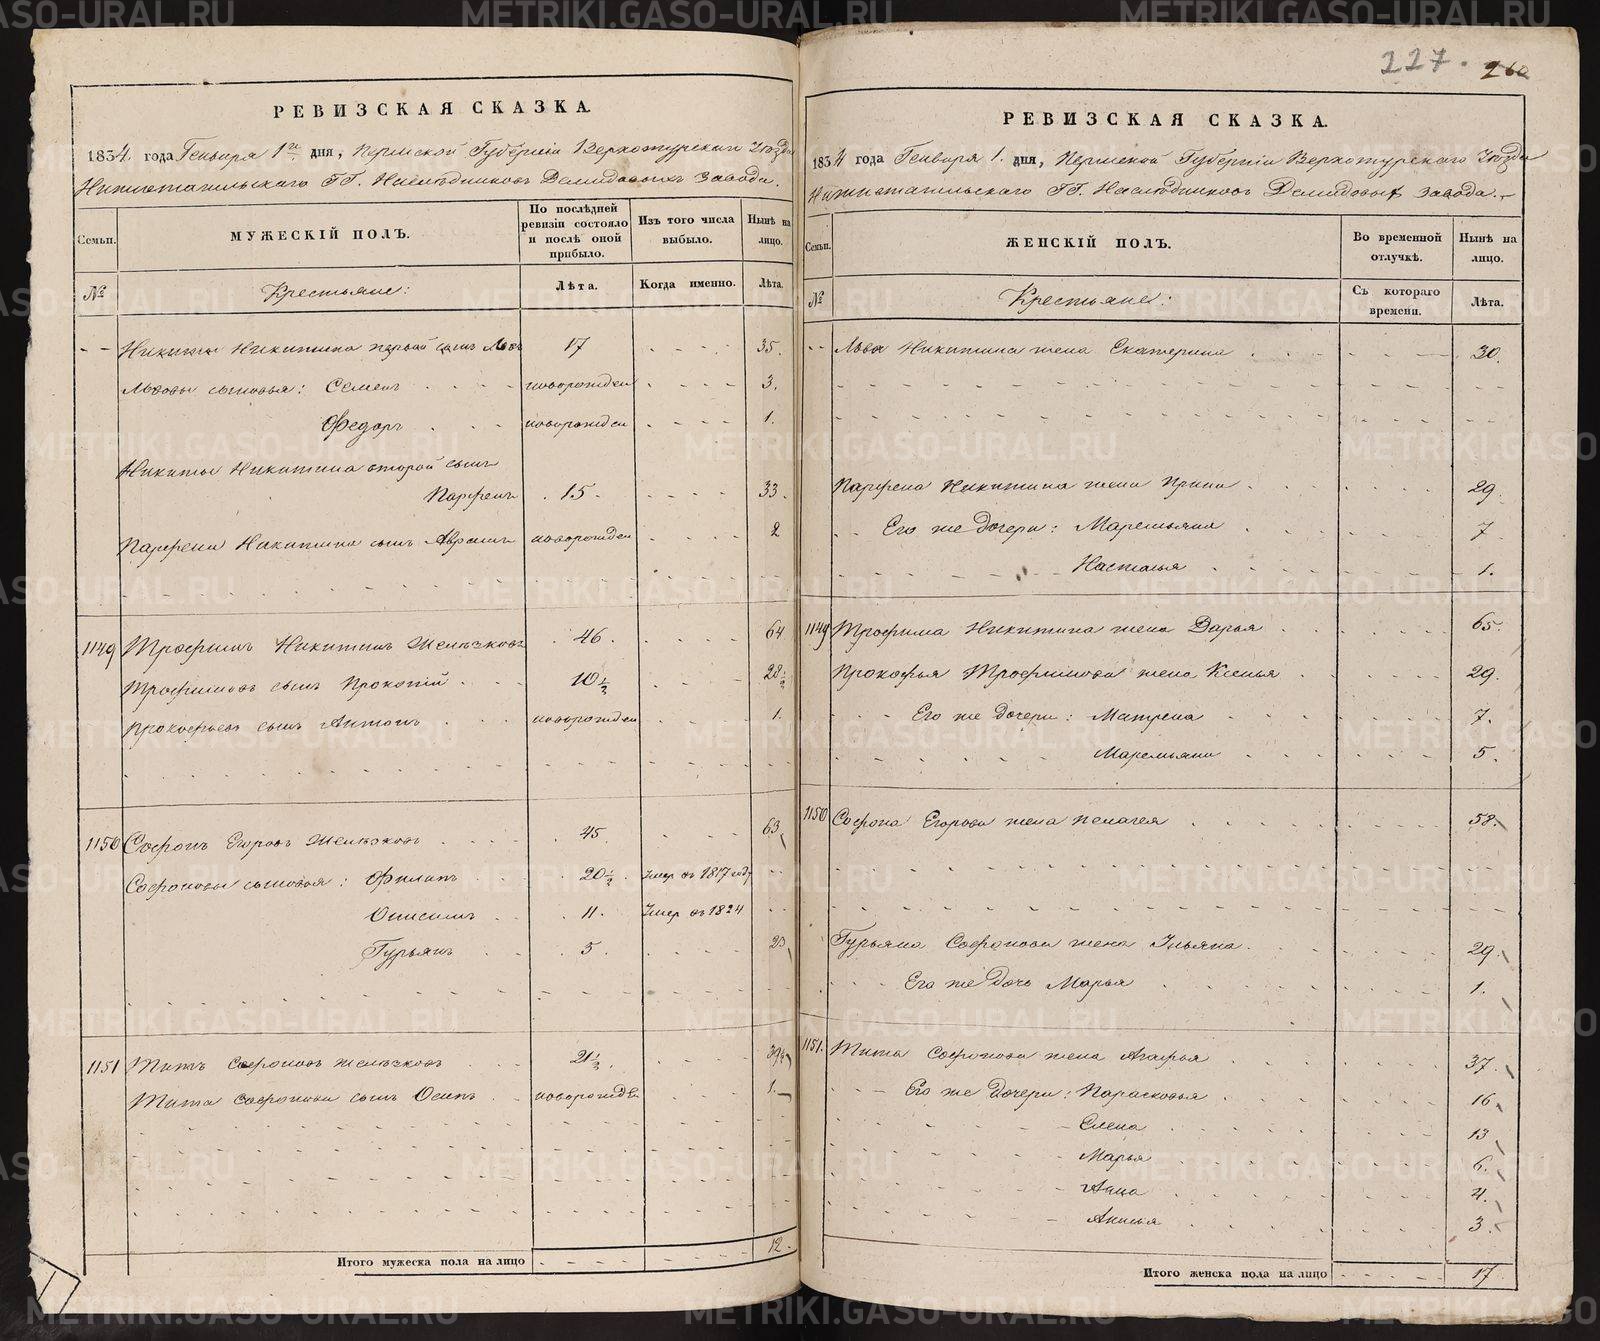 227. 260
РЕВИЗСКАЯ СКАЗКА.
1834 года Генваря 1го дня, Пермской Губернiи Верхотурскаго Уѣзда
Нижнетагильскаго ГГ. Наслѣдниковъ Демидовыхъ Завода.
Семьи. МУЖЕСКIЙ ПОЛЪ. По послѣдней ревизiи состояло и послѣ оной прибыло. Изъ того числа выбыло. Нынѣ на лицо.
№ Крестьяне: Лѣта. Когда именно. Лѣта.
Никиты Никитина первой сынъ Левъ 17 35.
Львовы сыновья: Семенъ новорожден 3.
Федоръ новорожден 1.
Никиты Никитина второй сынъ
Парфенъ 15. 33.
Парфена Никитина сынъ Аврамъ новорожден 2
1149 Трофимъ Никитинъ Желѣзковъ 46. 64
Трофимовъ сынъ Прокопiй 10½ 28½
Прокофьевъ сынъ Антонъ новорожден 1.
1150 Софронъ Егоровъ Желѣзковъ 45. 63
Софроновы сыновья: Филипъ 20½ Умер въ 1817 году
Онисимъ 11. Умер въ 1824
Гурьянъ 5. 23
1151 Титъ Софроновъ Желѣзковъ 21½ 39½
Тита Софронова сынъ Осипъ новорожде 1.
12.
Итого мужеска пола на лицо
РЕВИЗСКАЯ СКАЗКА.
1834 года Генваря 1. дня, Пермской Губернiи Верхотурскаго Уѣзда
Нижнетагильскаго ГГ. Наслѣдниковъ Демидовых Завода.
Семьи. ЖЕНСКIЙ ПОЛЪ. Во временной отлучкѣ. Нынѣ на лицо.
№ Крестьяне: Съ котораго времени. Лѣта.
Льва Никитина жена Екатерина 30.
Парфена Никитина жена Ирина 29.
Его же дочери: Маремьяна 7
Настасья 1.
1149 Трофима Никитина жена Дарья 65.
Прокофья Трофимова жена Ксенья 29.
Его же дочери: Матрена 7.
Маремьяна 5.
1150 Софрона Егорова жена Пелагея 58.
Гурьяна Софронова жена Ульяна 29.
Его же дочь Марья 1.
1151. Тита Софронова жена Агафья 37.
Его же дочери: Парасковья 16
Елена 13
Марья 6.
Анна 4.
Анисья 3.
Итого женска пола на лицо 17
METRIKI.GASO-URAL.RU